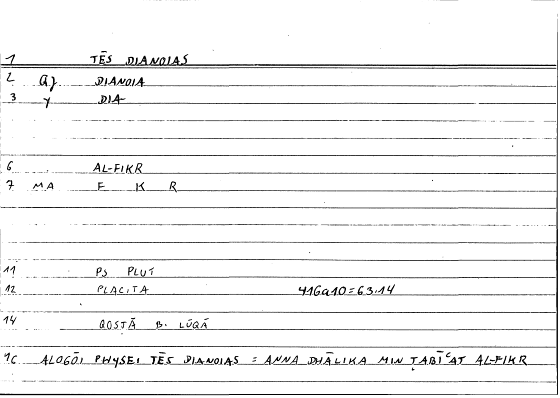 1 TĒS DIANOIAS
2 Gj DIANOIA
3 y DIA-
6 AL-FIKR
7 MA F K R
11 PS PLUT
12 PLACITA 416a10=63.14
14 QOSṬĀ B. LŪQĀ
16 ALOGŌI PHYSEI TĒS DIANOIAS = ANNA DHĀLIKA MIN ṬABĪᶜAT AL-FIKR